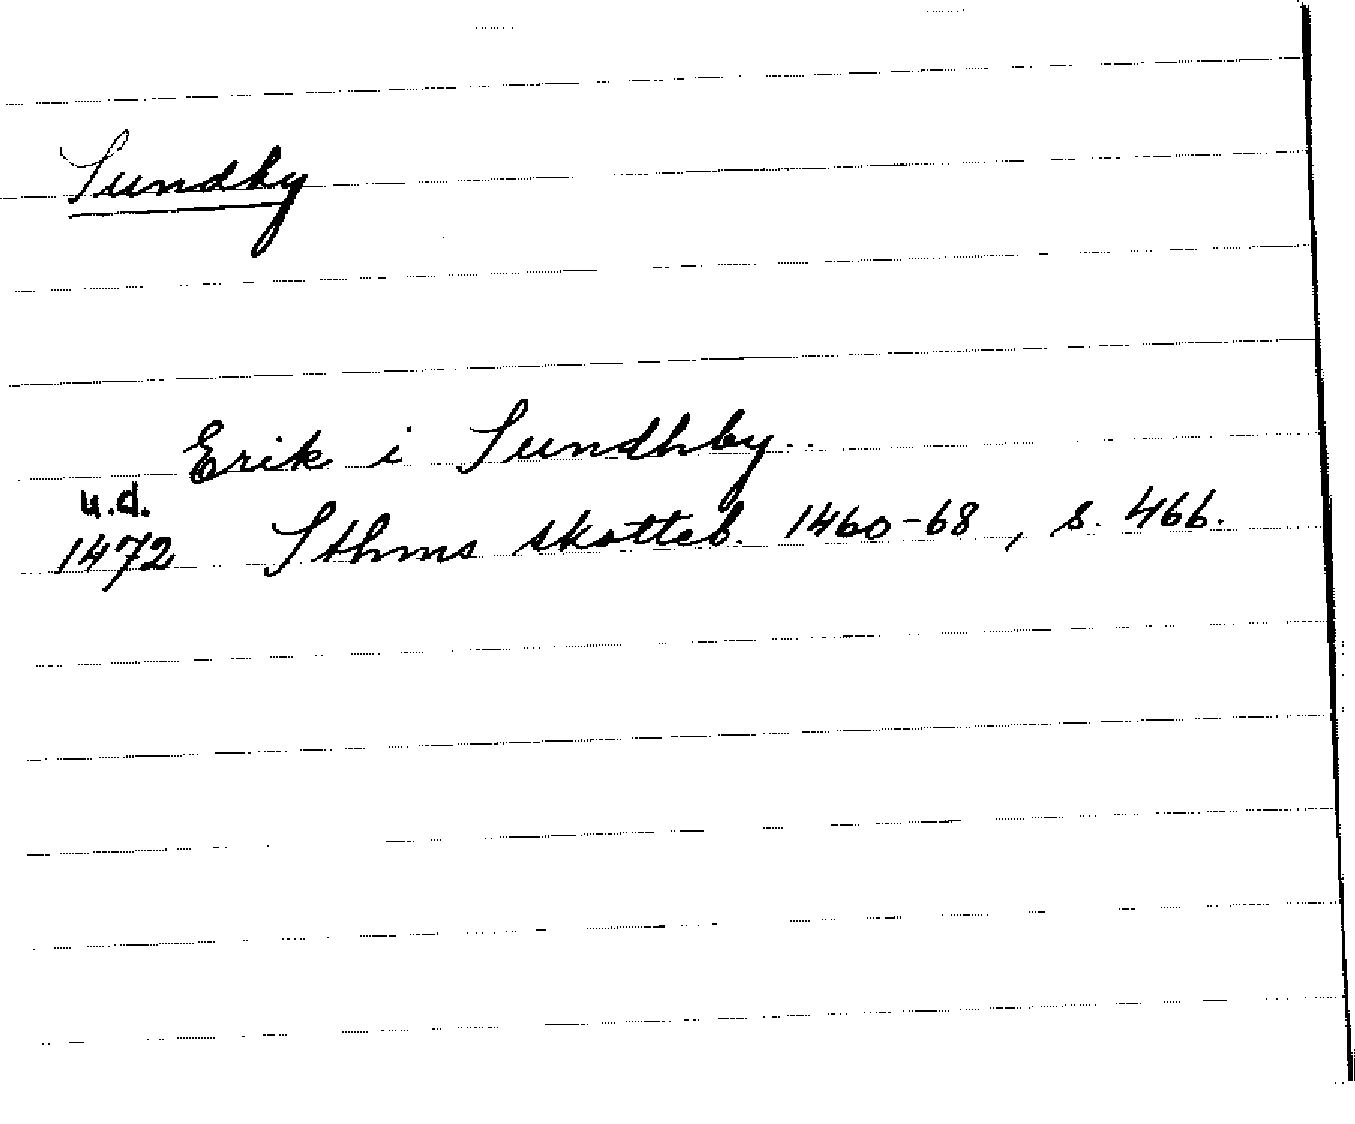 Sundby
Erik i Sundhby
u.d.
1472 Sthms skotteb. 1460-68, s. 466.